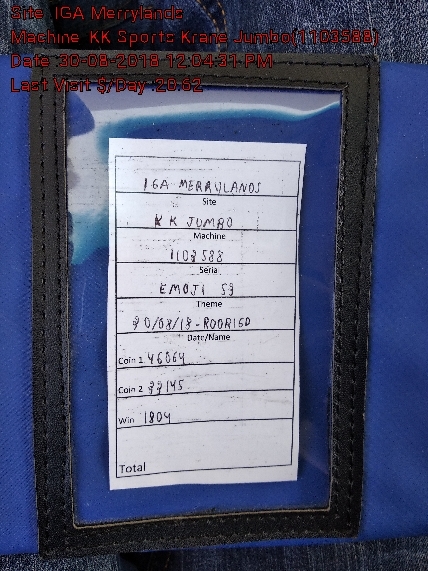 Site :IGA Merrylands
Machine :KK Sports Krane Jumbo(1103588)
Date :30-08-2018 12:04:31 PM
Last Visit $/Day :20.62
IGA MERRYLANDS
Site
KK JUMBO
Machine
1103588
Seria
EMOJI S3
Theme
30/08/18-RODRIGO
Date/Name
Coin 1 46064
Coin 2 33145
Win 1804
Total